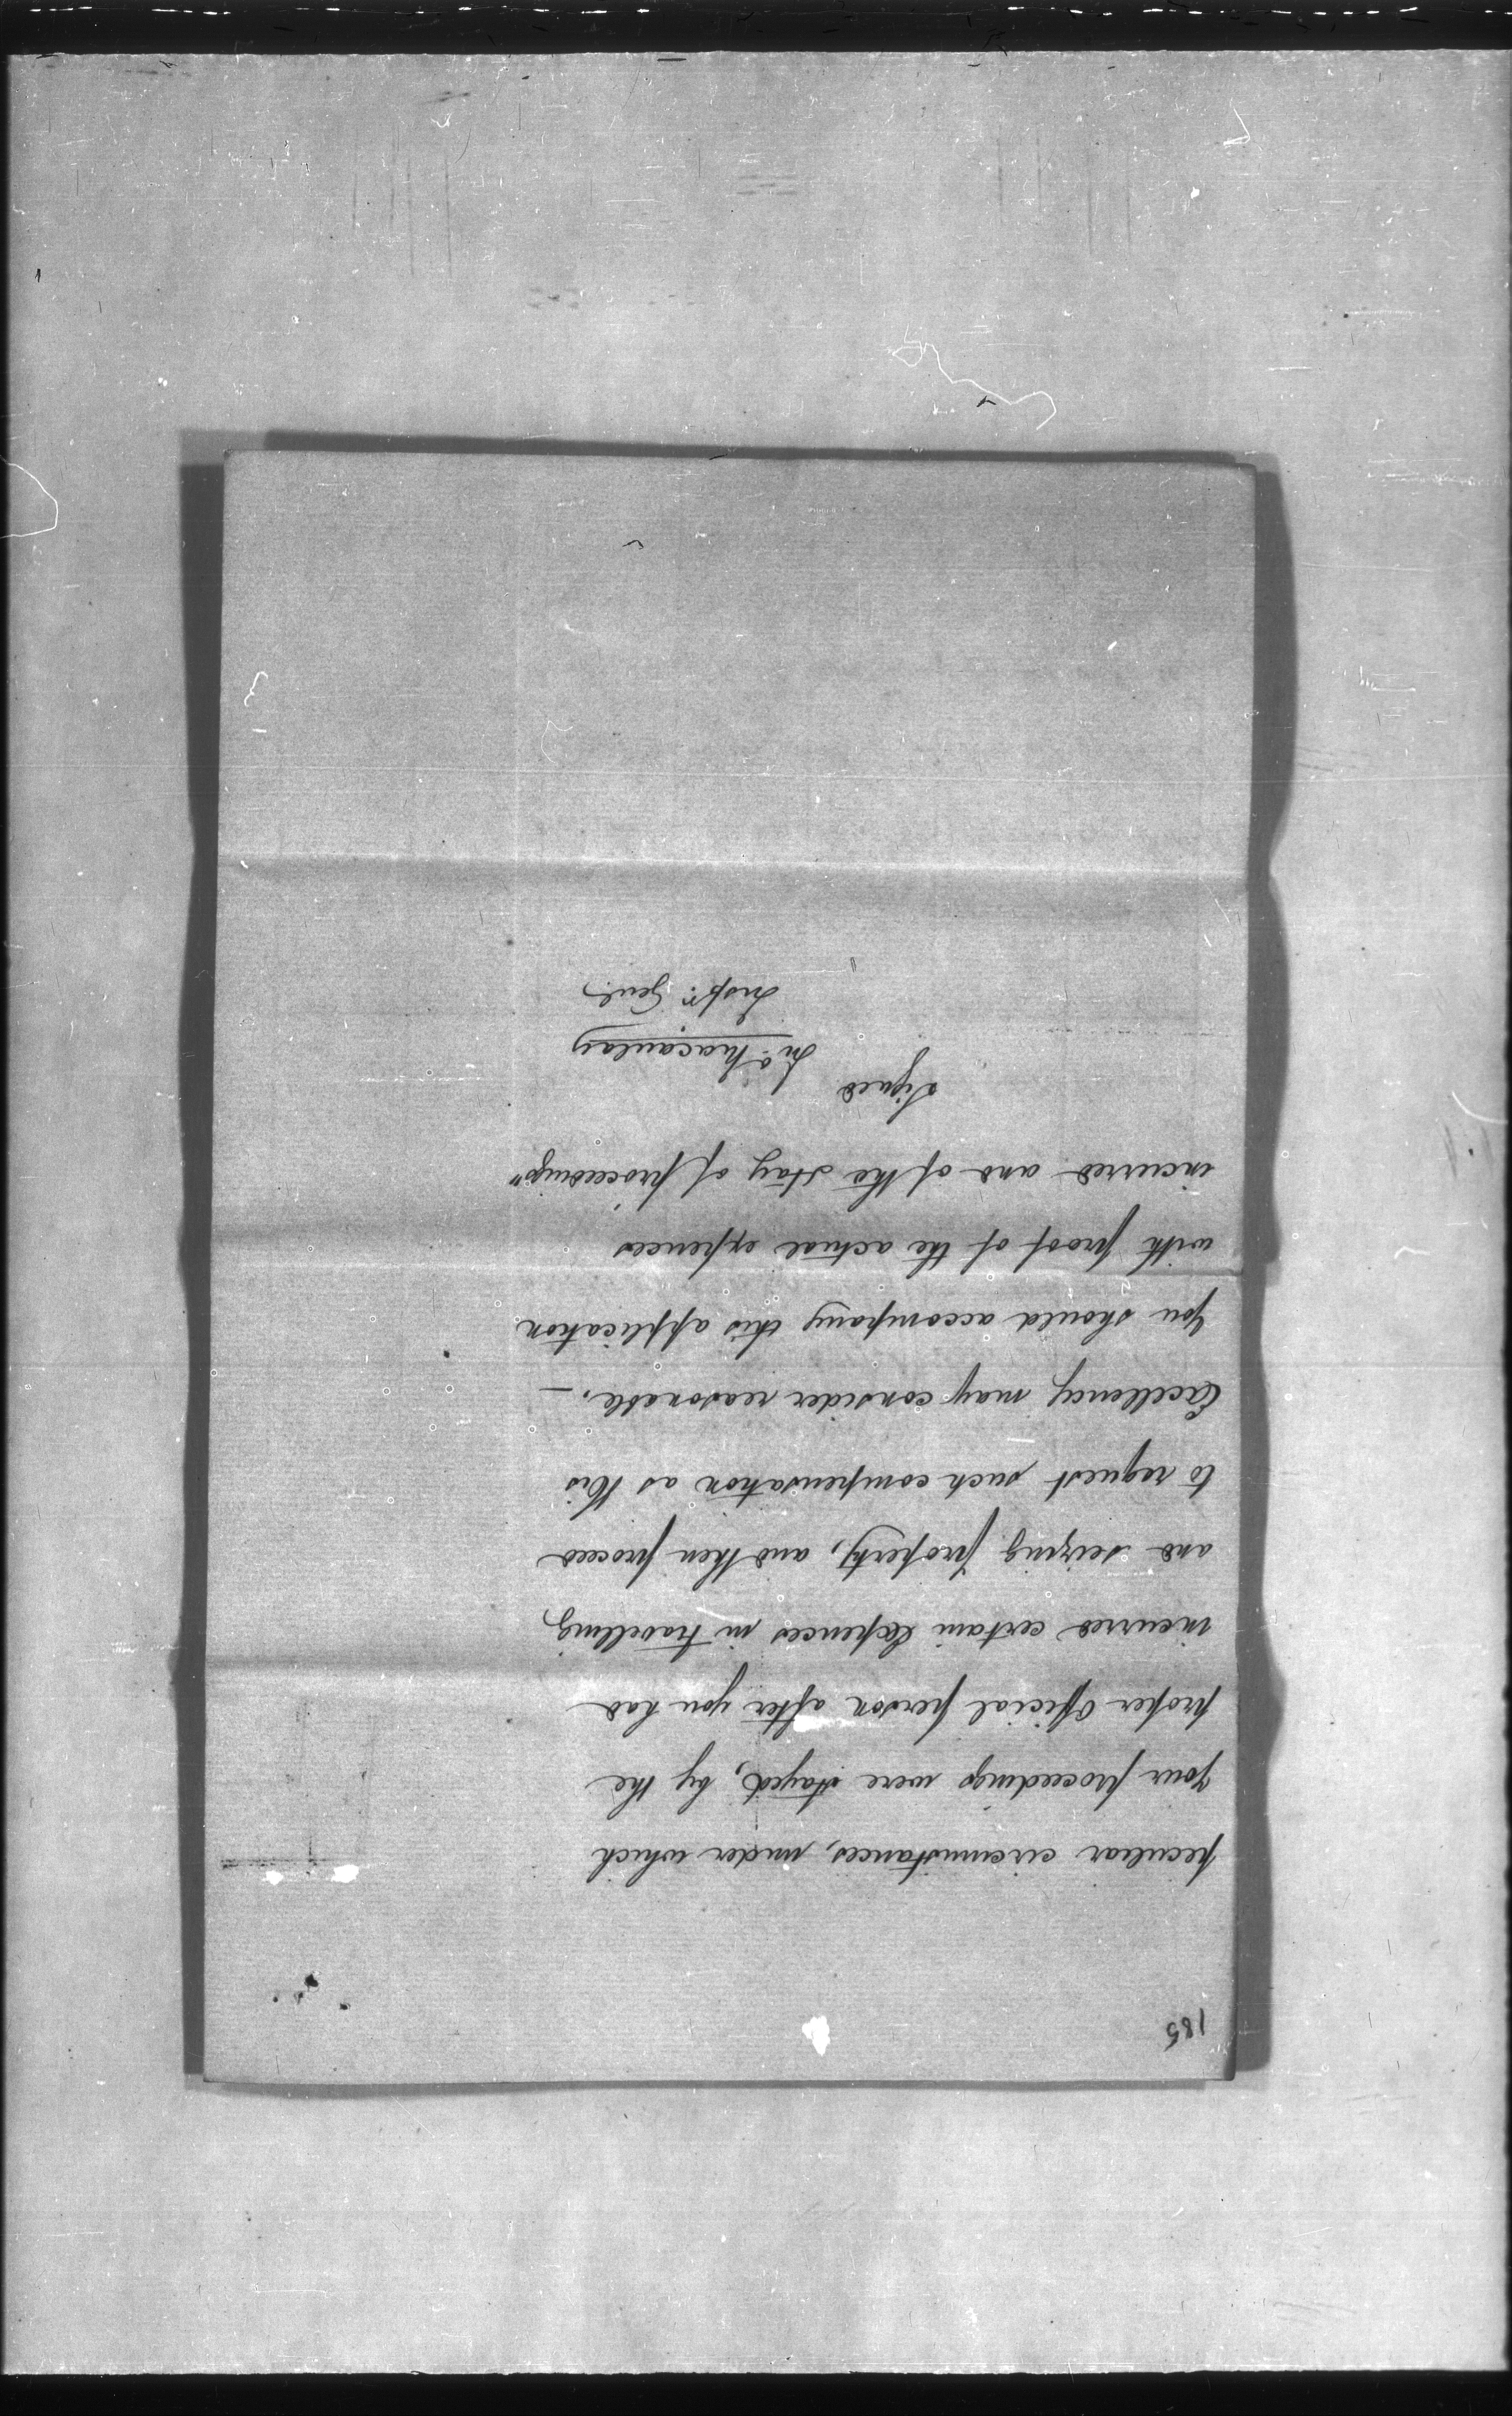 185
peculiar circumstances, under which
your proceedings were stayed, by the
proper Official person after you had
incurred certain Expences in travelling
and seizing property, and then proceed
to request such compensation as His
Excellency may consider reasonable. —
You should accompany this application
with proof of the actual expences
incurred and of the stay of proceedings"
Signed
Jno Macaulay
Inspr. Genl.